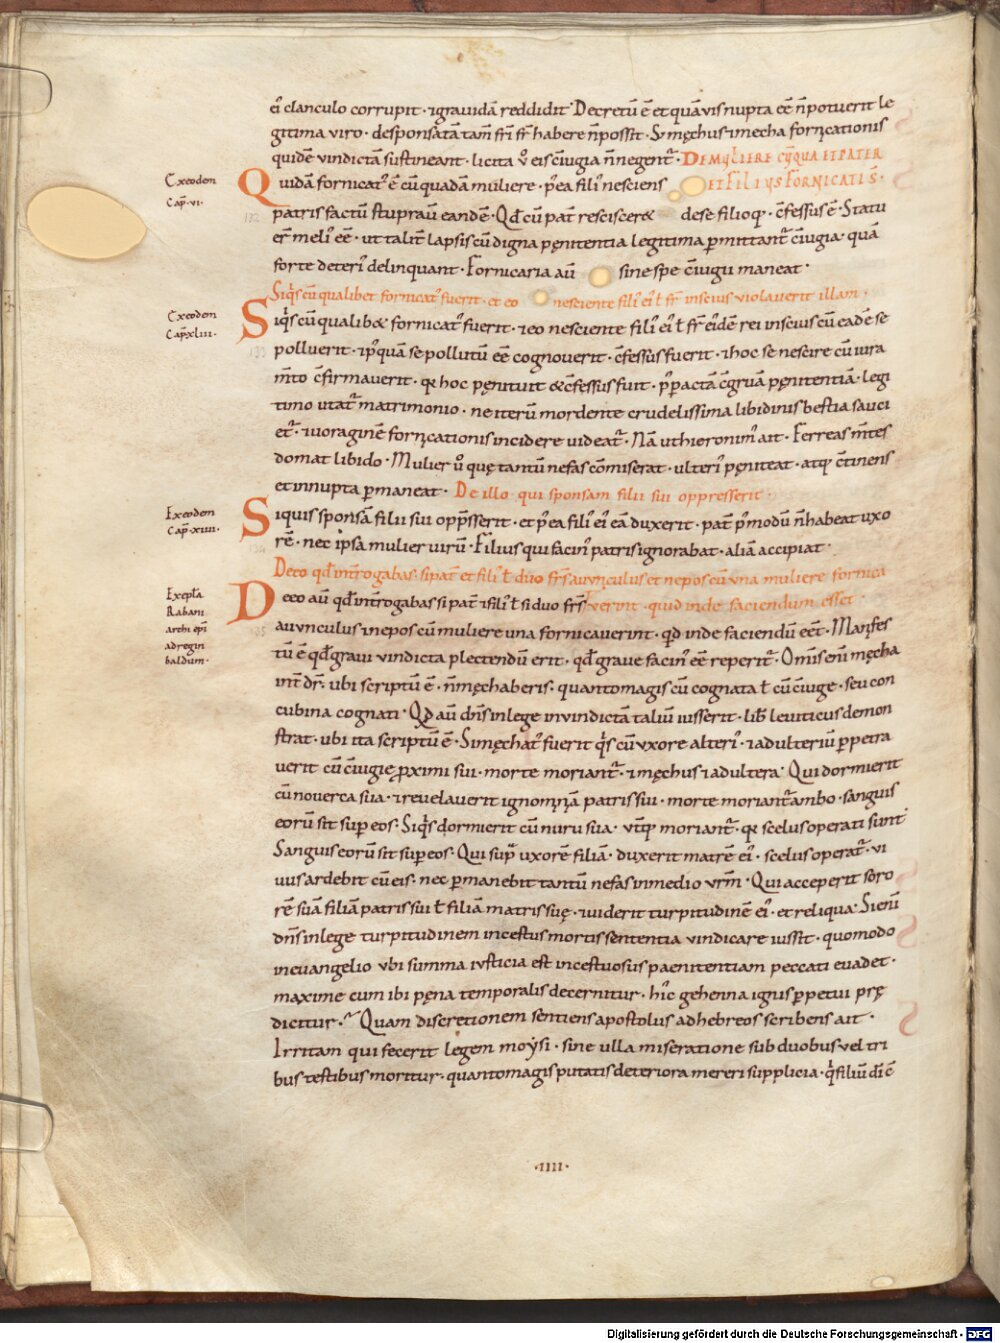 ei᷒ clanculo corrupit · ⁊ grauidā reddidit · Decretū ē et quāuis nupta eē n̄ potuerit le
gitima viro · desponsatā tam̄ fr̄i fr̄ habere n̄ possit · S; męchus ⁊ mecha fornicationis
quidē vindictā sustineant · licita ṽ eis c̄iugia n̄ negent᷒ · DE MULIERE CŨ QUA ET PATER
Cx eodem
Cap̄ · vi ·
Quidā fornicat᷒ ē cū quadā muliere · p᷒ ea fili᷒ nesciens ET FILIUS FORNICATI S̄ ·
patris factū stuprauit eandē · Qđ cū pat̄ rescisceret de se filioq; · c̄fessus ē · Statu
er̄ meli᷒ eē · ut talit̄ lapsis cū digna pęnitentia legitima ꝑmittant᷒ c̄iugia · quā
forte deteri᷒ delinquant · Fornicaria aū sine spe c̄iugii maneat ·
Siq̇s cū qualibet fornicat᷒ fuerit · et eo nesciente fili᷒ ei᷒ ł fr̄ inscius violauerit illam ·
Cx eodem
Cap̄ · xliii ·
Siq̇s cū qualib& fornicat᷒ fuerit · ⁊ eo nesciente fili᷒ ei᷒ ł fr̄ ei᷒dē rei inscius cū eadē se
polluerit · ⁊ p᷒quā se pollutū eē cognouerit · c̄fessus fuerit · ⁊ hoc se nescire cū iura
m̄to c̄firmauerit · q; hoc pęnituit & c̄fessus fuit · p᷒ ꝑactā c̄gruā pęnitentiā · legi
timo utat᷒ matrimonio · ne iterū mordente crudelissima libidinis bestia sauci
et᷒ · ⁊ uoraginē fornicationis incidere uideat᷒ · Nā ut hieronim᷒ ait · Ferreas m̄tes
domat libido · Mulier ů quę tantū nefas cōmiserat · ulteri᷒ pęniteat · atq; c̄tinens
et innupta ꝑmaneat · De illo qui sponsam filii sui oppresserit ·
Ex eodem
Cap̄ · xiiii ·
Siquis sponsā filii sui opp̄sserit · et p᷒ ea fili᷒ ei᷒ eā duxerit · pat̄ p᷒modū n̄ habeat uxo
rē · nec ipsa mulier uirū · Filius qui facin᷒ patris ignorabat · aliā accipiat ·
De eo qđ int̄rogabas · si pat̄ et fili᷒ ł duo fr̄s auunculus et nepos cū una muliere fornica
Ex ep̄la
Rabani
archi ep̄i
ad regin
baldum ·
De eo aū qđ int̄rogabas si pat̄ ⁊ fili᷒ ł si duo fr̄s uerint · quid inde faciendum esset ·
auunculus ⁊ nepos cū muliere una fornicauerint · qd inde faciendū eēt · Manifes
tū ē qđ graui vindicta plectendū erit · qđ graue facin᷒ eē reperit᷒ · Om̄is enī męcha
int̄dr̄ · ubi scriptū ē · n̄ męchaberis · quanto magis cū cognata ł cū c̄iuge · seu con
cubina cognati · Qd aū dn̄s in lege in vindictā taliū iusserit · lib̄ leuiticus demon
strat · ubi ita scriptū ē · Si męchat᷒ fuerit q̇s cū uxore alteri᷒ · ⁊ adulteriū ꝑpetra
uerit cū c̄iuge ꝓximi sui · morte moriant᷒ · ⁊ męchus ⁊ adultera · Qui dormierit
cū nouerca sua · ⁊ reuelauerit ignominiā patris sui · morte moriant᷒ ambo · sanguis
eorū sit sup eos · Siq̇s dormierit cū nuru sua · ut᷒q; moriant᷒ · q; scelus operati sunt
Sanguis eorū sit sup eos · Qui sup̄ uxorē filiā · duxerit matrē ei᷒ · scelus operat᷒ · vi
uus ardebit cū eis · nec ꝑmanebit tantū nefas in medio vr̄m · Qui acceperit soro
rē suā filiā patris sui ł filiā matris suę · ⁊ uiderit turpitudinē ei᷒ · et reliqua · Si enī
dn̄s in lege turpitudinem incestus mortis sententia vindicare iussit · quomodo
in euangelio ubi summa iusticia est incestuosus paenitentiam peccati euadet ·
maxime cum ibi pęna temporalis decernitur · hic gehenna ignis ꝑpetui prę
dicitur · Quam discretionem sentiens apostolus ad hebreos scribens ait ·
Irritam qui fecerit legem moẏsi · sine ulla miseratione sub duobus vel tri
bus testibus moritur · quanto magis putatis deteriora mereri supplicia · q̇ filiū dī c̄
· IIII ·
Digitalisierung gefördert durch die Deutsche Forschungsgemeinschaft - DFG